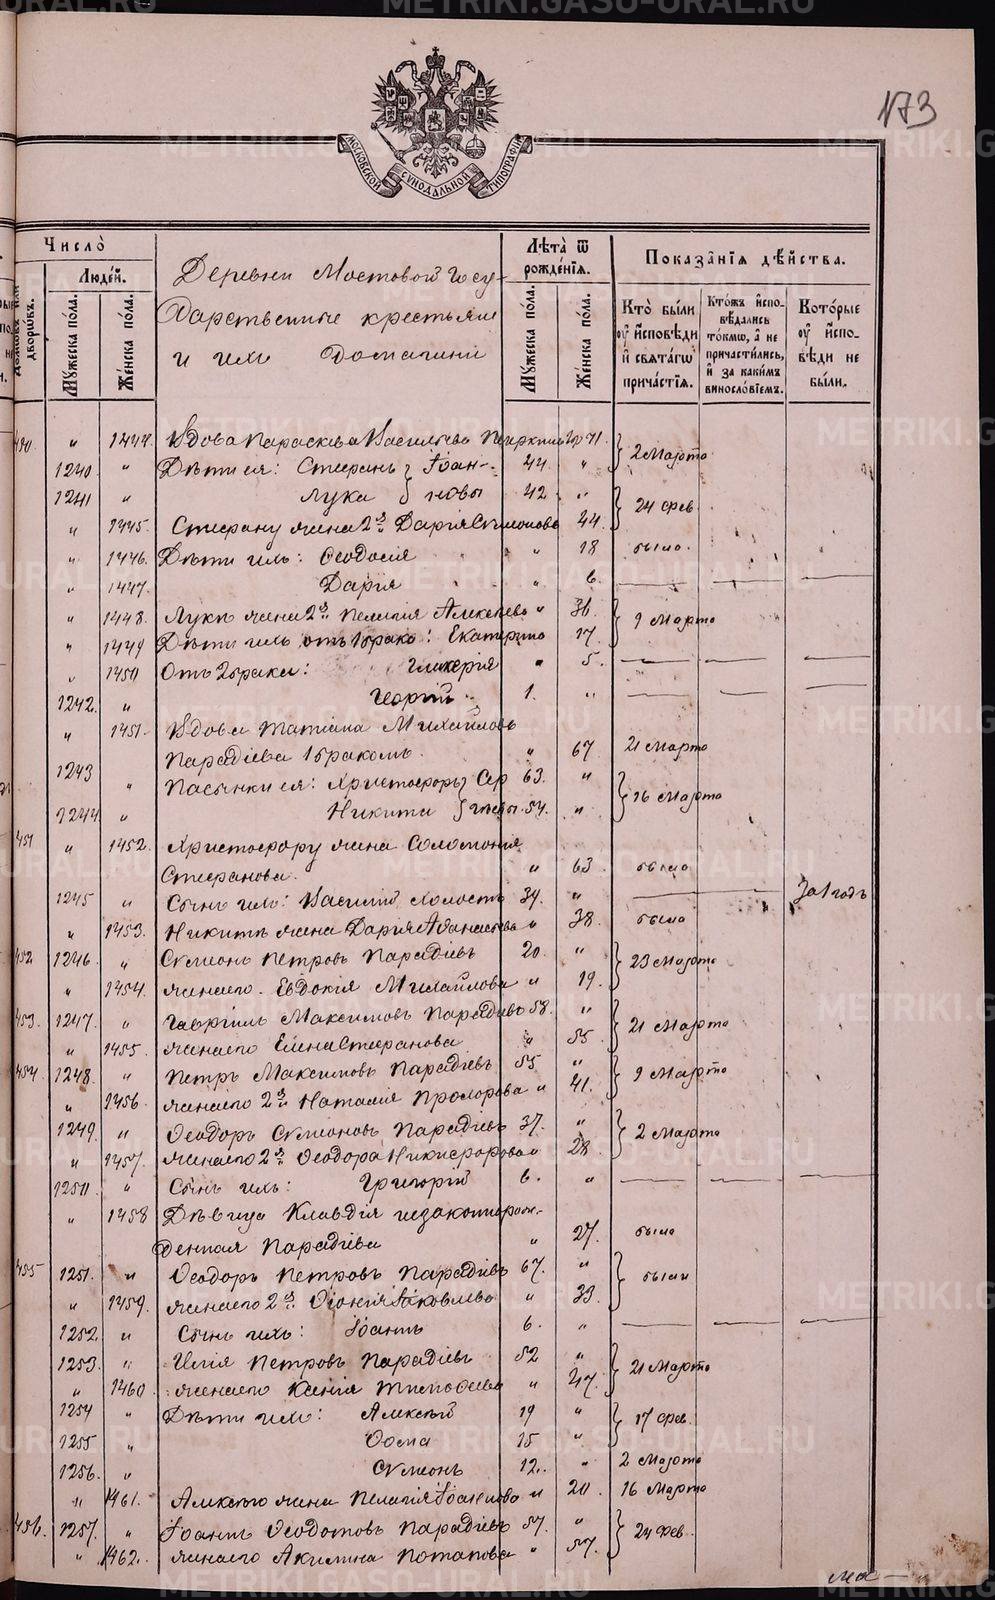 173
МОСКОВСКОЙ СѴНОДАЛЬНОЙ ТИПОГРАФІИ
Число̀
Людей.
домовъ или дворовъ.
Мꙋжеска по́ла.
Же́нска по́ла.
Деревни Мостовой Госу-
дарственные крестьяне
и ихъ домашніи
Лѣта̀ ѿ рожде́нїѧ.
Мꙋжеска по́ла.
Же́нска по́ла.
Показа̑нїѧ дѣ́йства.
Кто̀ бы́ли ᲂу҆ и҆сповѣди и҆ свѧта́гѡ прича́стїѧ.
Кто́жъ и҆спо-вѣдались то́кмѡ, а҆ не причасти́лись, и҆ за каки́мъ винослові́емъ.
Кото́рые ᲂу҆ и҆спо-вѣди не бы́ли.
" 1444. Вдова Параскева Васильева 71. 2 Марта
1240 " Дѣти ея: Стефанъ } Іоан- 44. "
1241 " Лука } новы 42 " 24 фев
" 1445. Стефану жена 2я Дарія Сѵмеонова 44.
" 1446. Дѣти ихъ: Ѳеодосія " 18 было.
" 1447. Дарія " 6. — — —
" 1448. Лукѣ жена 2я Пелагія Алексѣева " 36. 9 Марта
" 1449 Дѣти ихъ отъ 1 брака: Екатерина 17.
" 1450 Отъ 2 брака: Гликерія " 5. — — —
1242. " Георгій 1. " — — —
" 1451. Вдова Татіана Михайлова
Парадіева 1 бракомъ. " 67 21 Марта
1243 " Пасынки ея: Христофоръ } Сер 63. " 16 Марта
1244 " Никита } гіевы 54. "
451 " 1452. Христофору жена Соломонія
Стефанова. " 63 была
1245 " Сынъ ихъ: Василій холостъ 34. " — За 1 годъ
" 1453. Никитѣ жена Дарія Аѳанасьева " 38. была
452 1246. " Сѵмеонъ Петровъ Парадіевъ 20. " 23 Марта
" 1454. жена его Евдокія Михайлова " 19.
453. 1247. " Гавріилъ Максимовъ Парадіевъ 58. " 21 Марта
" 1455. жена его Елена Стефанова " 55
454 1248. " Петръ Максимовъ Парадіевъ 55 " 9 Марта
" 1456. жена его 2я Наталія Прохорова " 41.
1249. " Ѳеодоръ Сѵмеоновъ Парадіевъ 37. " 2 Марта
" 1457. жена его 2я Ѳеодора Никифорова " 28.
1250. " Сынъ ихъ: Григорій 6. " — — —
" 1458 Дѣвица Клавдія незаконнорож-
денная Парадіева " 27. была
455 1251. " Ѳеодоръ Петровъ Парадіевъ 67. " были
" 1459. жена его 2я Іаковлева " 33.
1252. " Сынъ ихъ: Іоаннъ 6. " — — —
1253. " Илія Петровъ Парадіевъ 52 " 21 Марта
" 1460. жена его Ксенія Тимоѳеева " 47.
1254 " Дѣти ихъ: Алексѣй 19 " 17 фев.
1255 " Ѳома 15 "
1256. " Сѵмеонъ 12. " 2 Марта
" 1461. Алексѣю жена Пелагія Іоаннова " 20. 16 Марта
456. 1257. " Іоаннъ Ѳеодотовъ Парадіевъ 57. " 24 фев.
" 1462. жена его Акилина Потапова " 57.